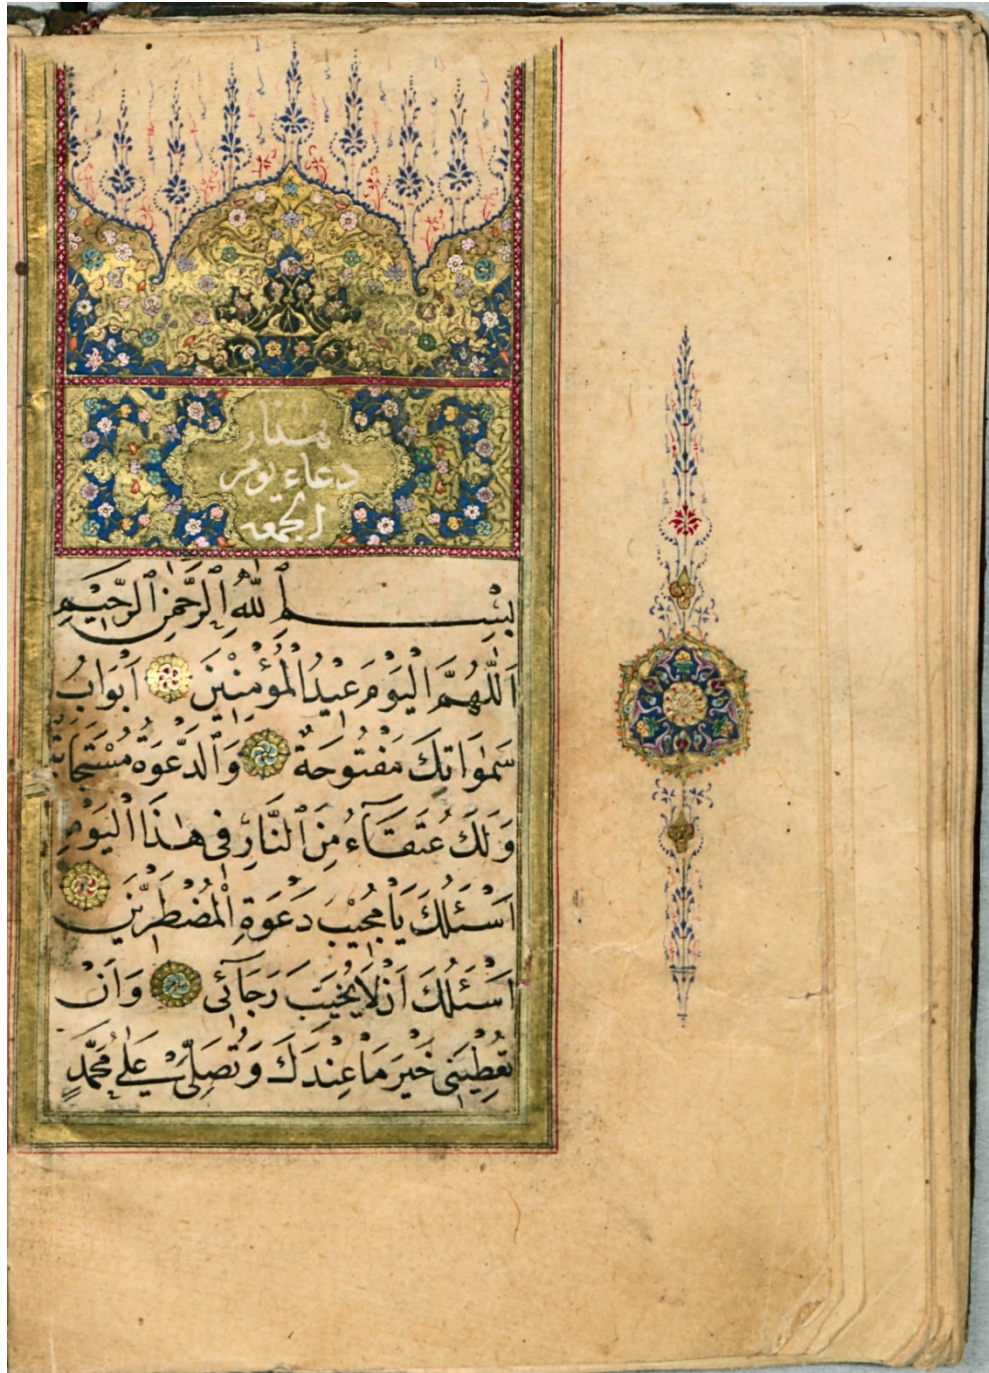 هذا
دعاء يوم
الجمعه
بِسْمِ ٱللّٰهِ ٱلرَّحْمٰنِ ٱلرَّحِيْمِ
اَللّٰهُمَّ الْيَوْمَ عِيْدُ الْمُؤْمِنِيْنَ اَبْوَابُ
سَمٰوَاتِكَ مَفْتُوحَةٌ وَالدَّعْوَةُ مُسْتَجَابَةٌ
وَلَكَ عُتَقَآءُ مِنَ النَّارِ فِى هٰذَا الْيَوْمِ
اَسْئَلُكَ يَا مُجِيْبَ دَعْوَةِ الْمُضْطَرِّيْنَ
اَسْئَلُكَ اَنْ لَا يُخَيِّبَ رَجَآئِى وَاَنْ
تُعْطِيَنِى خَيْرَ مَا عِنْدَكَ وَتُصَلِّىَ عَلٰى مُحَمَّدٍ